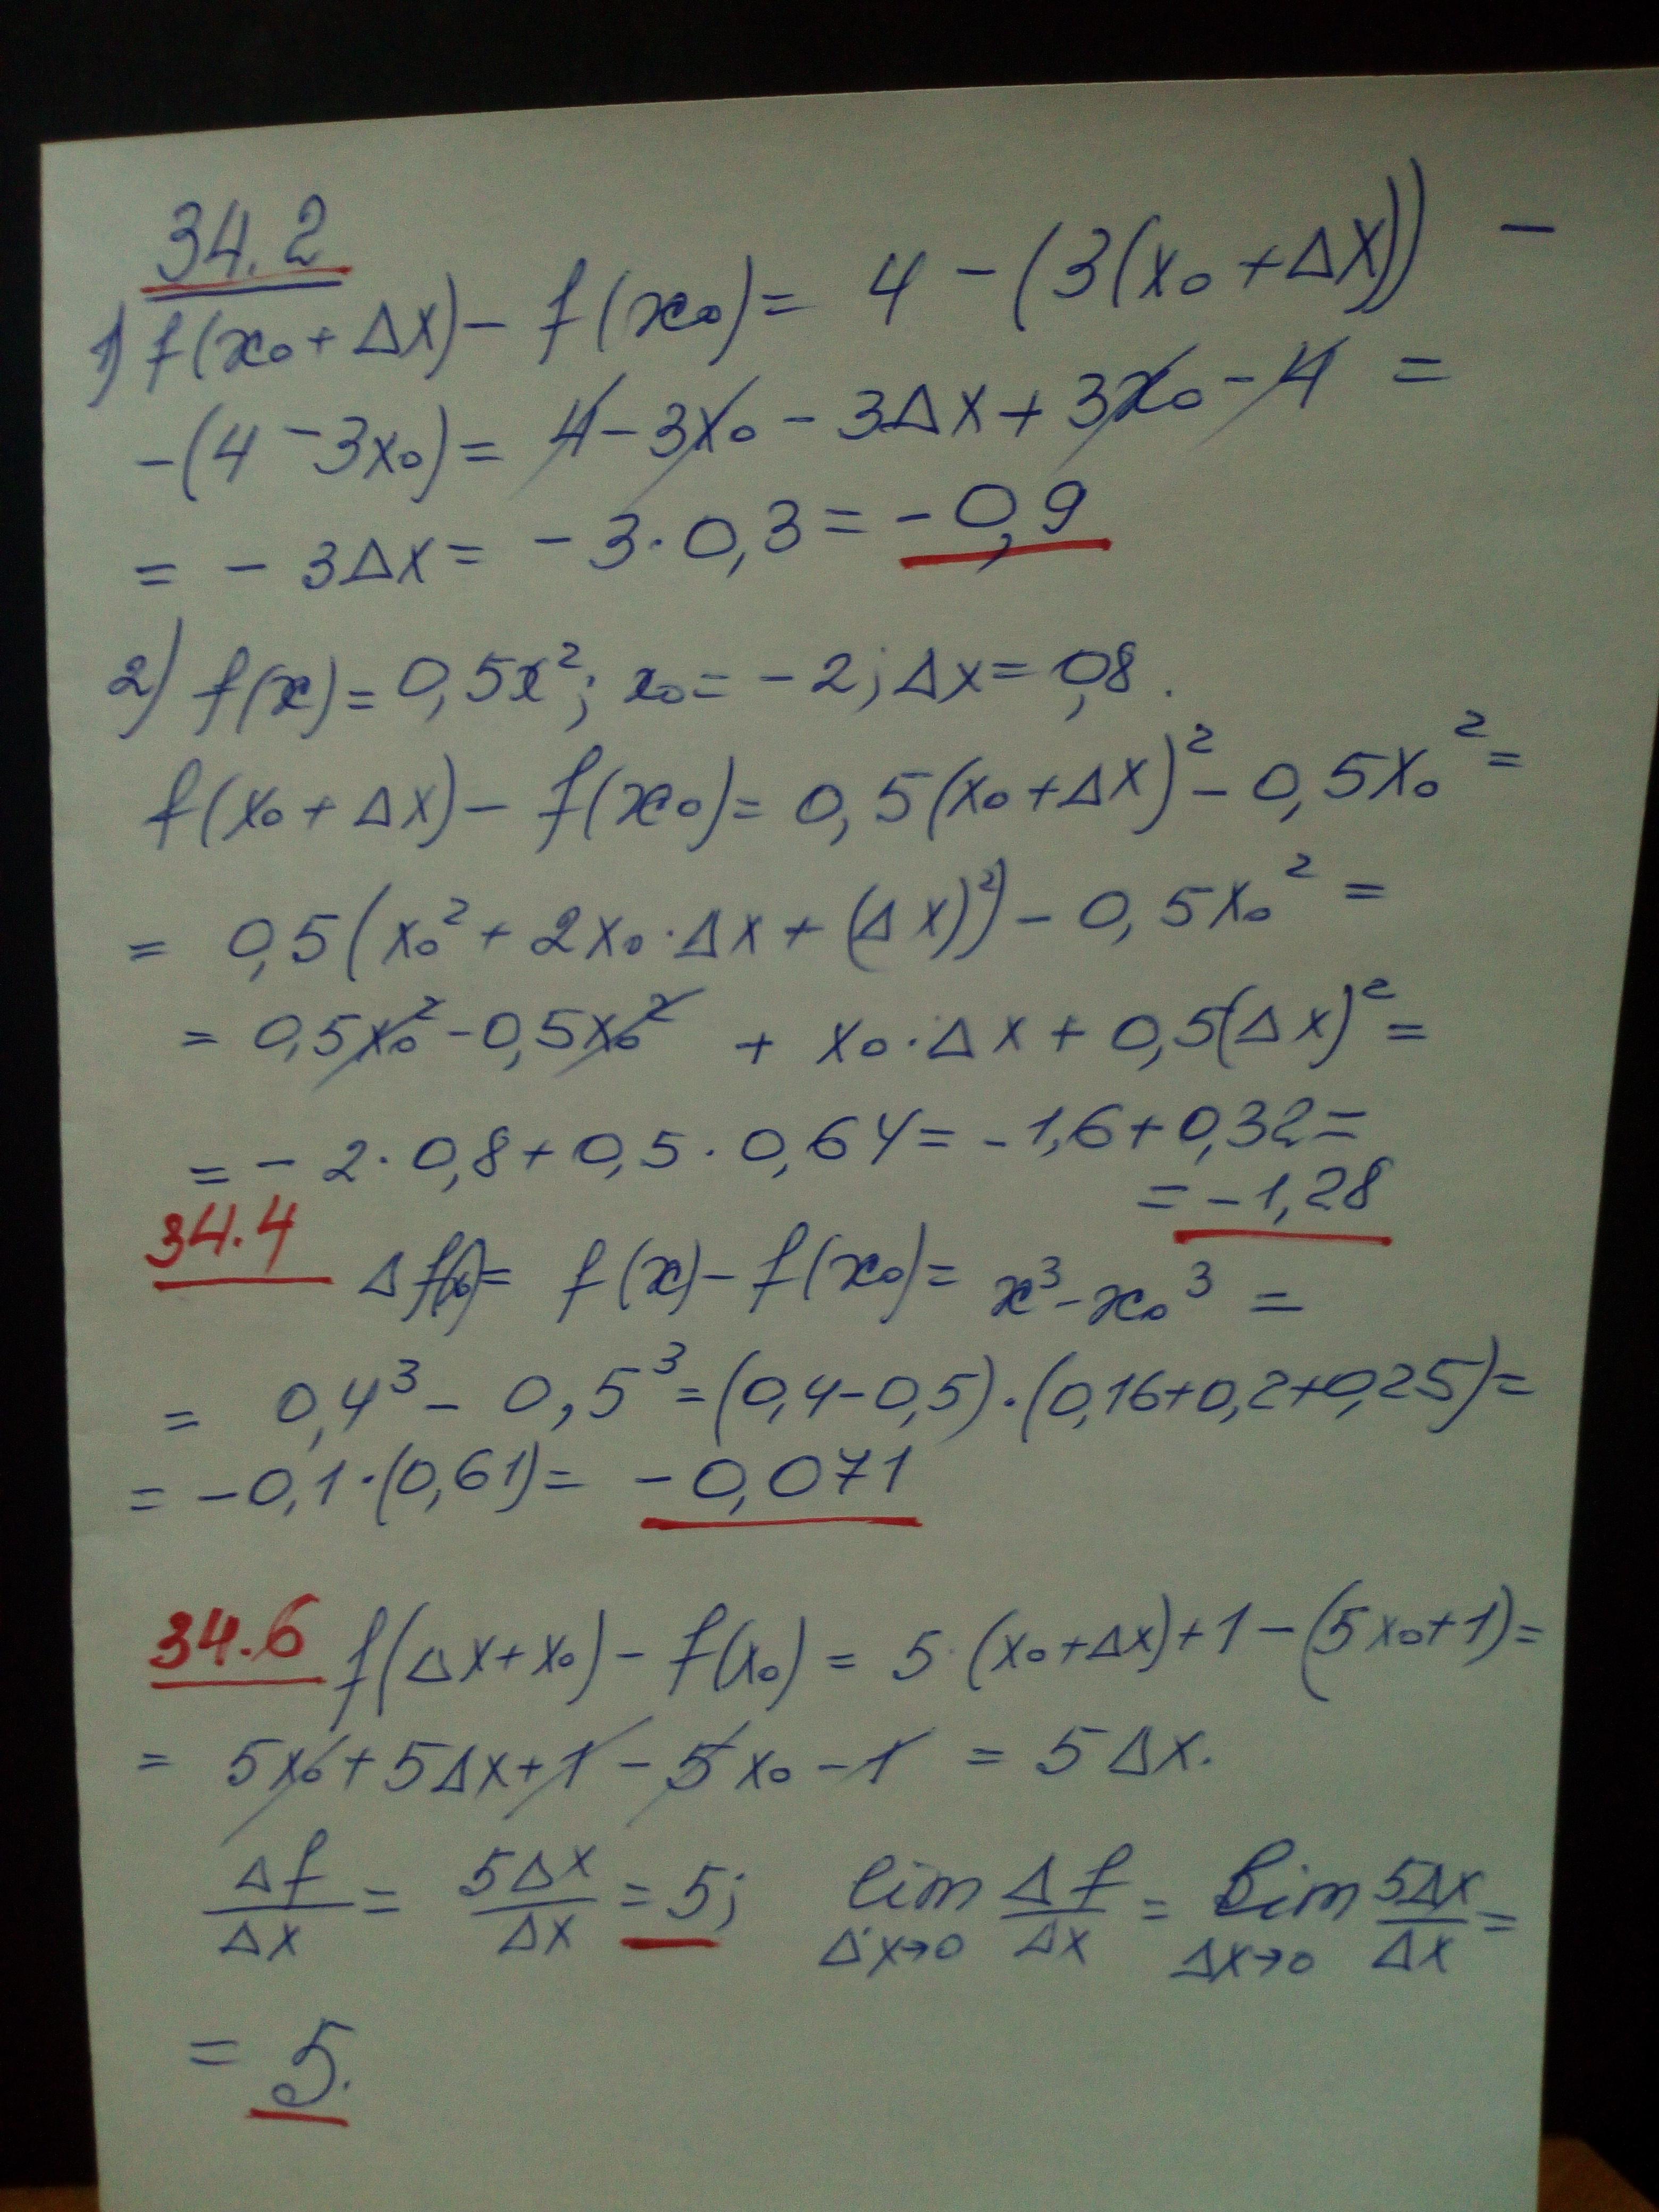 34.2
1) f(x₀ + Δx) - f(x₀) = 4 - (3(x₀ + Δx)) -
- (4 - 3x₀) = 4 - 3x₀ - 3Δx + 3x₀ - 4 =
= - 3Δx = - 3 · 0,3 = - 0,9
2) f(x) = 0,5x²; x₀ = - 2; Δx = 0,8.
f(x₀ + Δx) - f(x₀) = 0,5(x₀ + Δx)² - 0,5x₀² =
= 0,5(x₀² + 2x₀ · Δx + (Δx)²) - 0,5x₀² =
= 0,5x₀² - 0,5x₀² + x₀ · Δx + 0,5(Δx)² =
= - 2 · 0,8 + 0,5 · 0,64 = - 1,6 + 0,32 =
= - 1,28
34.4 Δf(x₀) = f(x) - f(x₀) = x³ - x₀³ =
= 0,4³ - 0,5³ = (0,4 - 0,5) · (0,16 + 0,2 + 0,25) =
= - 0,1 · (0,61) = - 0,071
34.6 f(Δx + x₀) - f(x₀) = 5 (x₀ + Δx) + 1 - (5x₀ + 1) =
= 5x₀ + 5Δx + 1 - 5x₀ - 1 = 5Δx.
Δf/Δx = 5Δx/Δx = 5; lim Δx→0 Δf/Δx = lim Δx→0 5Δx/Δx =
= 5.